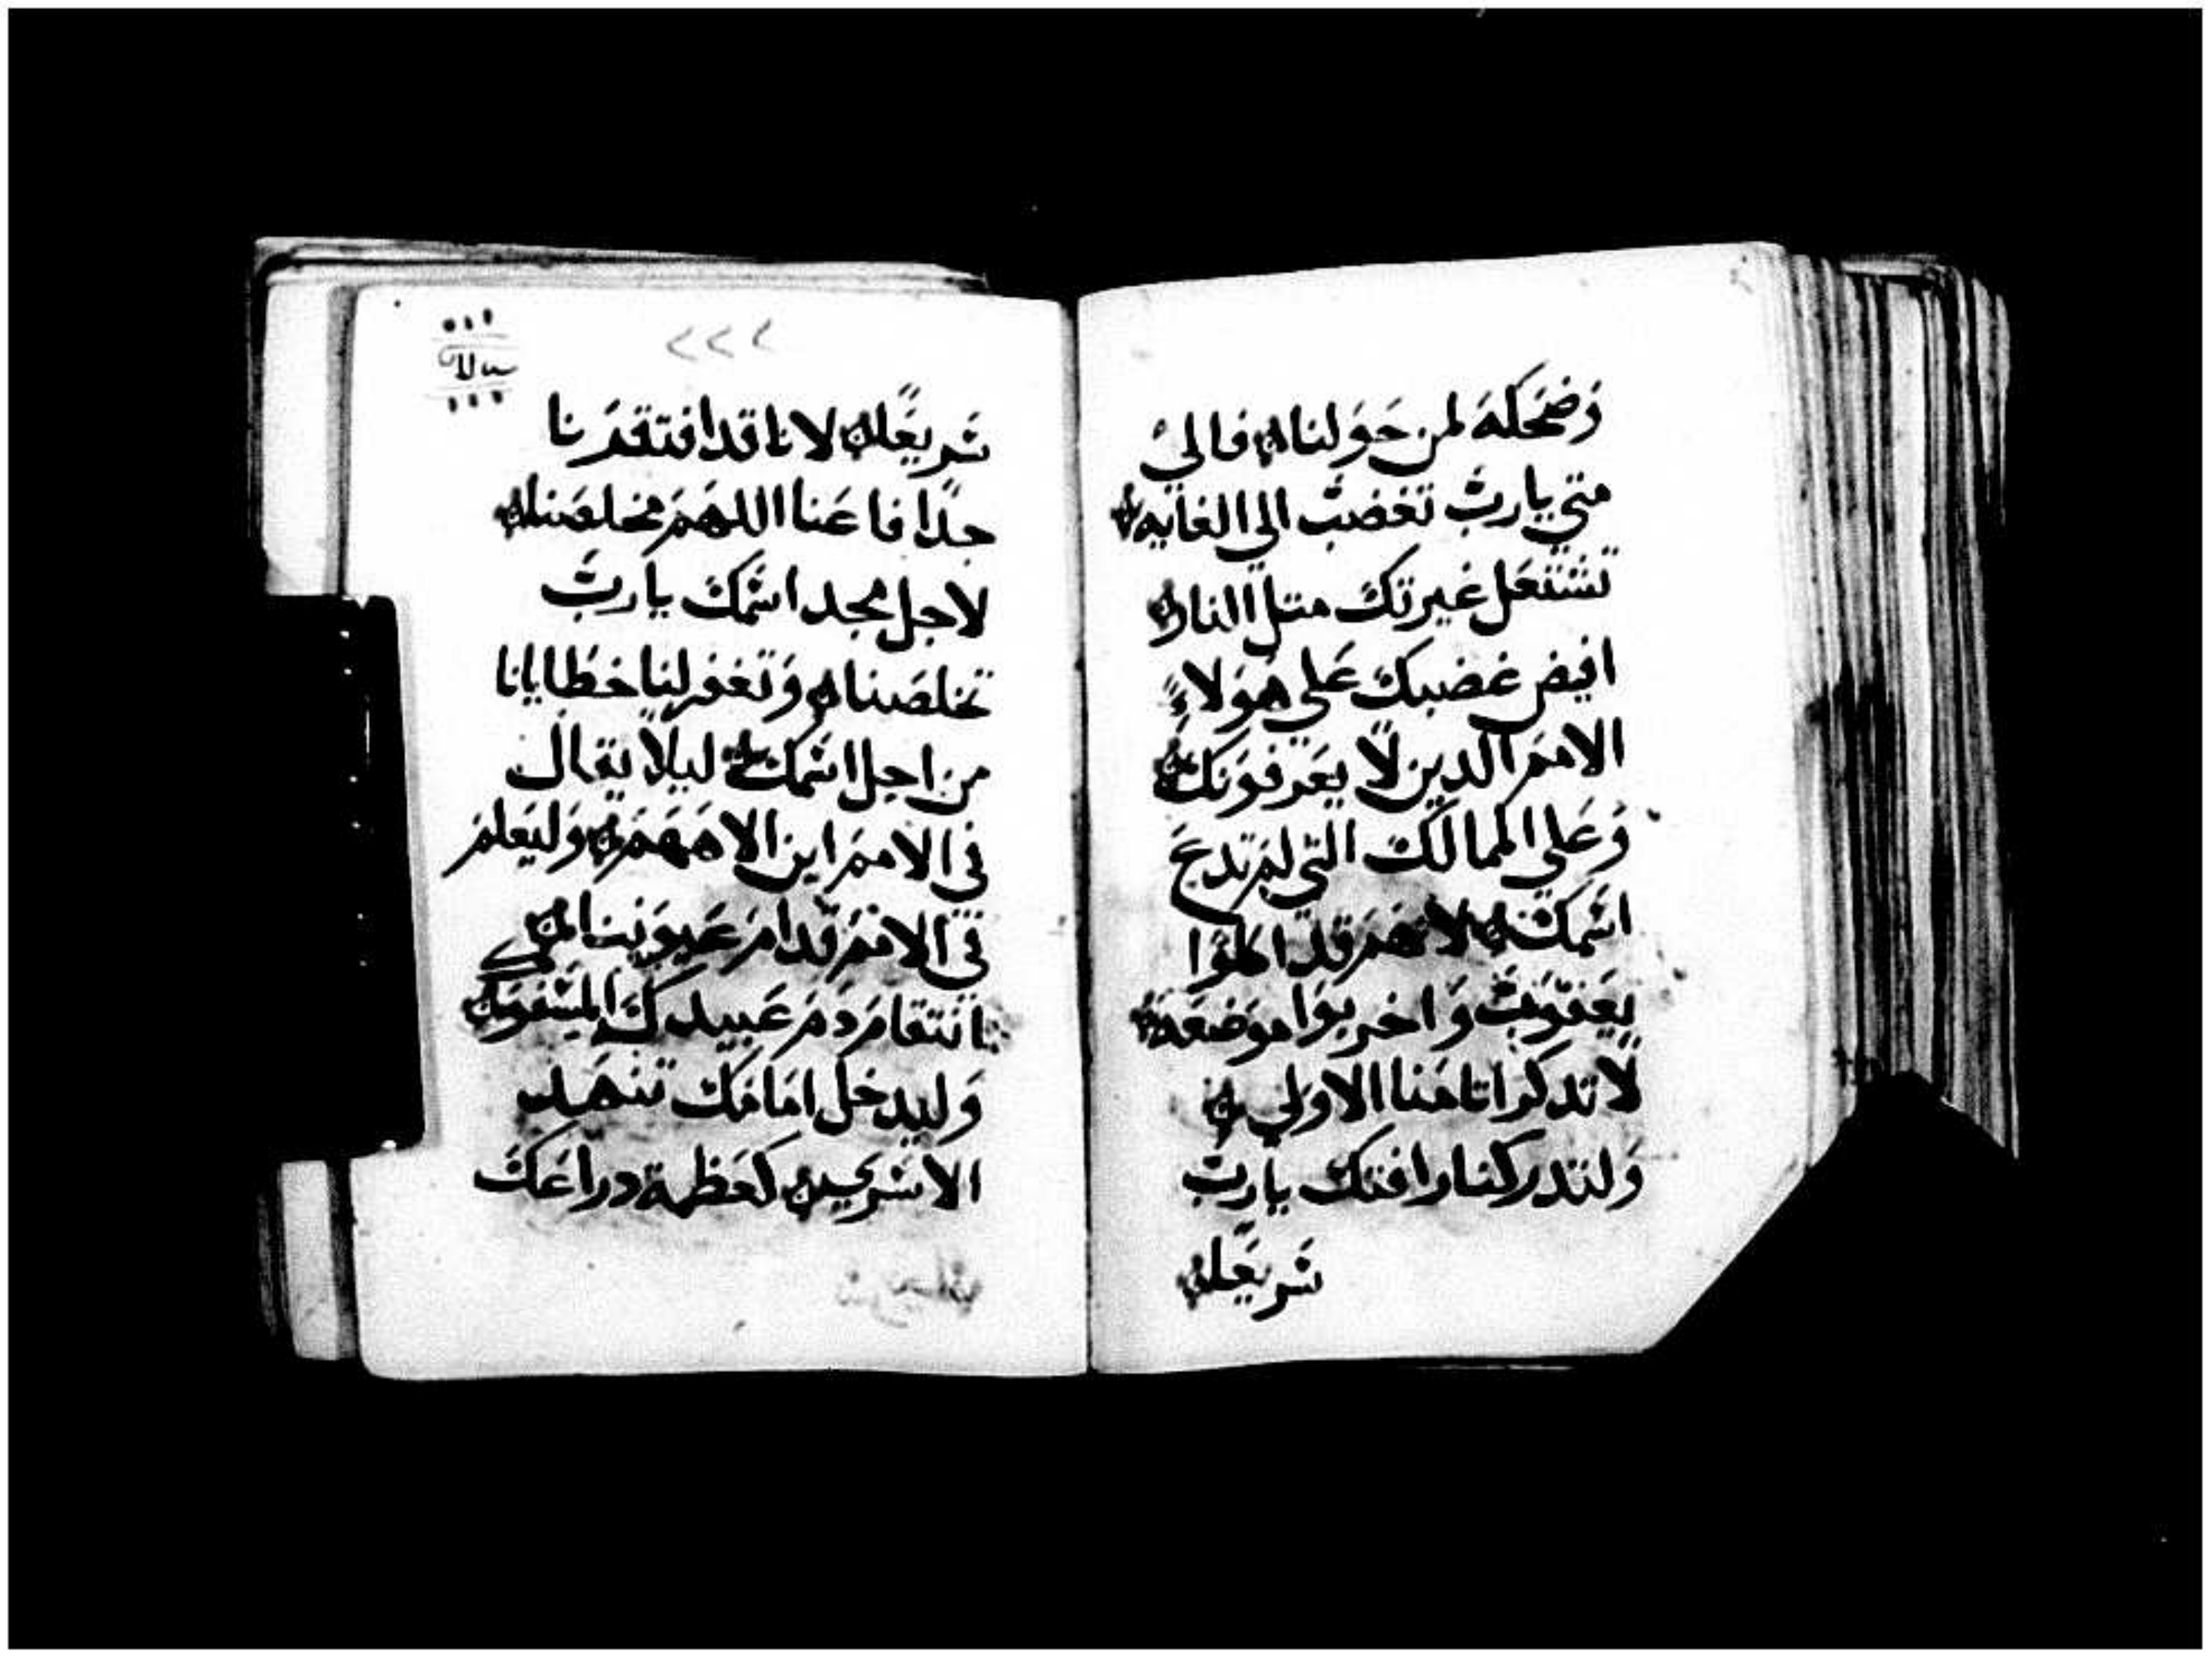 وَضحكَه لمن حَوَلنا فالي
متي يارب تغضب الي الغايه
تشتعل غيرتك متل النار
افيض غضبك عَلي هوَلاء
الامم الدين لا يعَرفوَنك
وَعَلي الممالك التي لم تدعَ
اسمك لانهم قد اكلوا
يعَقوَب وَاخربوا موَضعَه
لا تدكر اتامنا الاولي
وَلتدركنا رافتك يارب
سَريعَا
٢٢٢
سَريعَا لاناقد افتقرنا
جدا فاعَنا اللهم مخلصنا
لاجل مجد اسمك يارب
تخلصنا وَتغفر لنا خطايانا
من اجل اسمك ليلا يقال
في الامم اين الاههم وَليعَلم
في الامم قدام عَيوَننا
انتقام دم عَبيدك المسفوَك
وَليدخل امامك تنهد
الاسري كعَظمة دراعَك